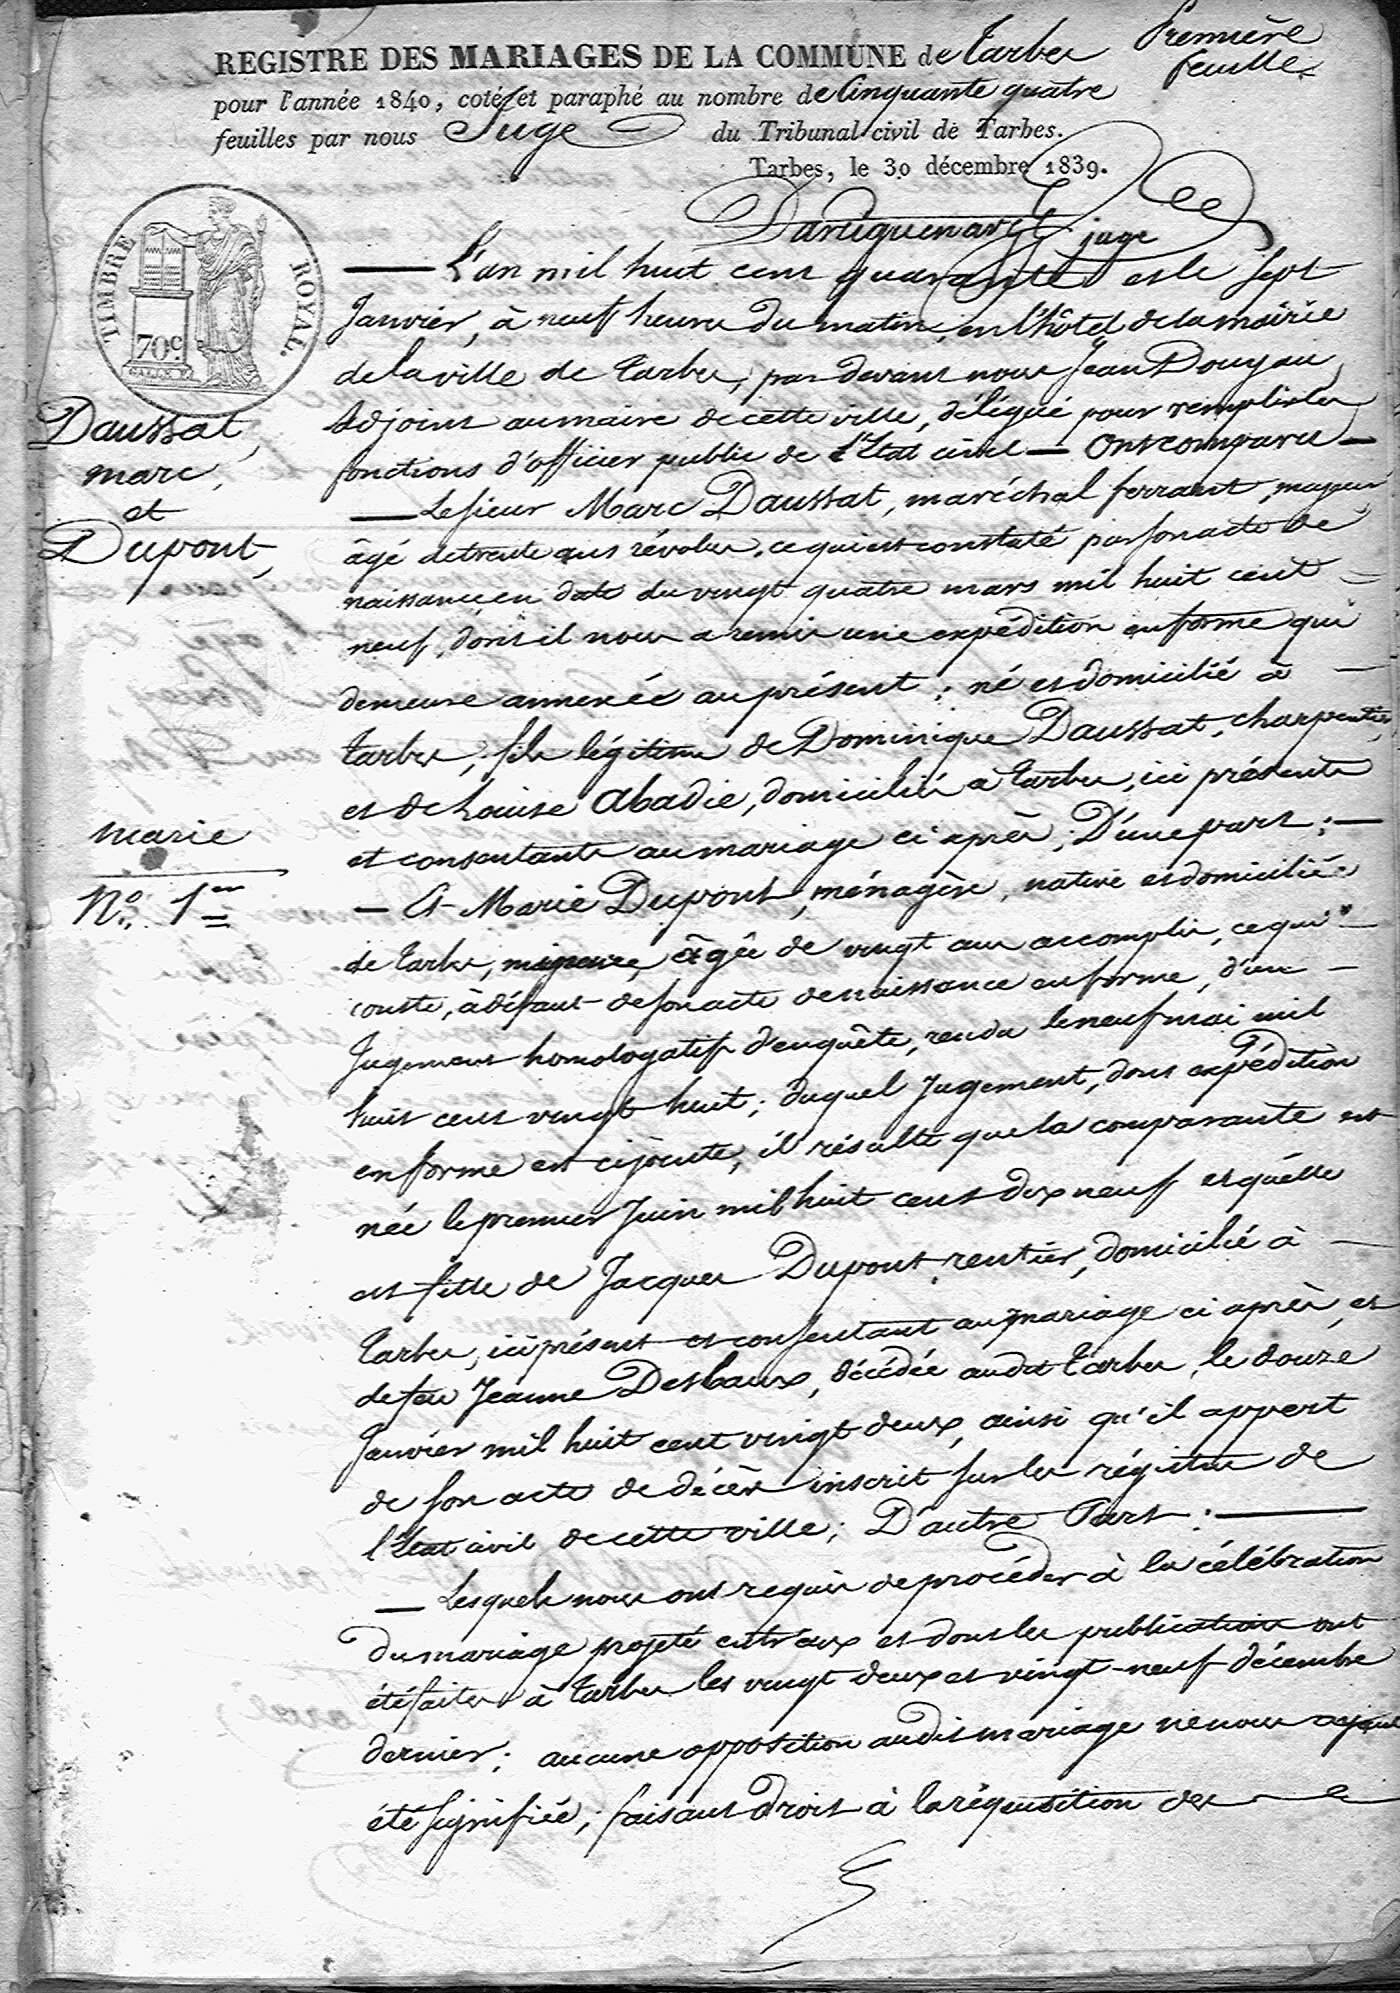 Première
feuille
REGISTRE DES MARIAGES DE LA COMMUNE de Tarbes
pour l'année 1840, coté et paraphé au nombre de Cinquante quatre
feuilles par nous Juge du Tribunal civil de Tarbes.
Tarbes, le 30 décembre 1839.
juge
TIMBRE ROYAL.
70c
Daussat,
marc,
et
Dupont,
marie
No. 1er
L'an mil huit cent quarante et le sept
Janvier, à neuf heures du matin, en l'hôtel de la mairie
de la ville de Tarbes, par devant nous Jean Douyau,
adjoint au maire de cette ville, délégué pour remplir les
fonctions d'officier public de l'Etat civil — Ont comparu —
— Le sieur Marc Daussat, maréchal ferrant, majeur
âgé de trente ans révolus, ce qui est constaté par son acte de
naissance, en date du vingt quatre mars mil huit cent
neuf, dont il nous a remis une expédition en forme qui
demeure annexée au présent; né et domicilié à
Tarbes, fils légitime de Dominique Daussat, charpentier,
et de Louise Abadie, domiciliés à Tarbes, ici présents
et consentants au mariage ci après; D'une part; —
— Et Marie Dupont, ménagère, native et domiciliée
de Tarbes, mineure, âgée de vingt ans accomplis, ce qui
conste, à défaut de son acte de naissance en forme, d'un
Jugement homologatif d'enquête, rendu le neuf mai mil
huit cent vingt huit; duquel Jugement, dont expédition
en forme est ci jointe, il résulte que la comparante est
née le premier Juin mil huit cent dix neuf et qu'elle
est fille de Jacques Dupont, rentier, domicilié à
Tarbes, ici présent et consentant au mariage ci après, et
de feu Jeanne Desbaux, décédée audit Tarbes, le douze
Janvier mil huit cent vingt deux, ainsi qu'il appert
de son acte de décès inscrit sur les régistres de
l'Etat civil de cette ville; D'autre Part: —
— Lesquels nous ont requis de procéder à la célébration
du mariage projeté entr'eux et dont les publications ont
été faites à Tarbes les vingt deux et vingt-neuf décembre
dernier; aucune opposition audit mariage ne nous ayant
été signifiée; faisant droit à la réquisition des